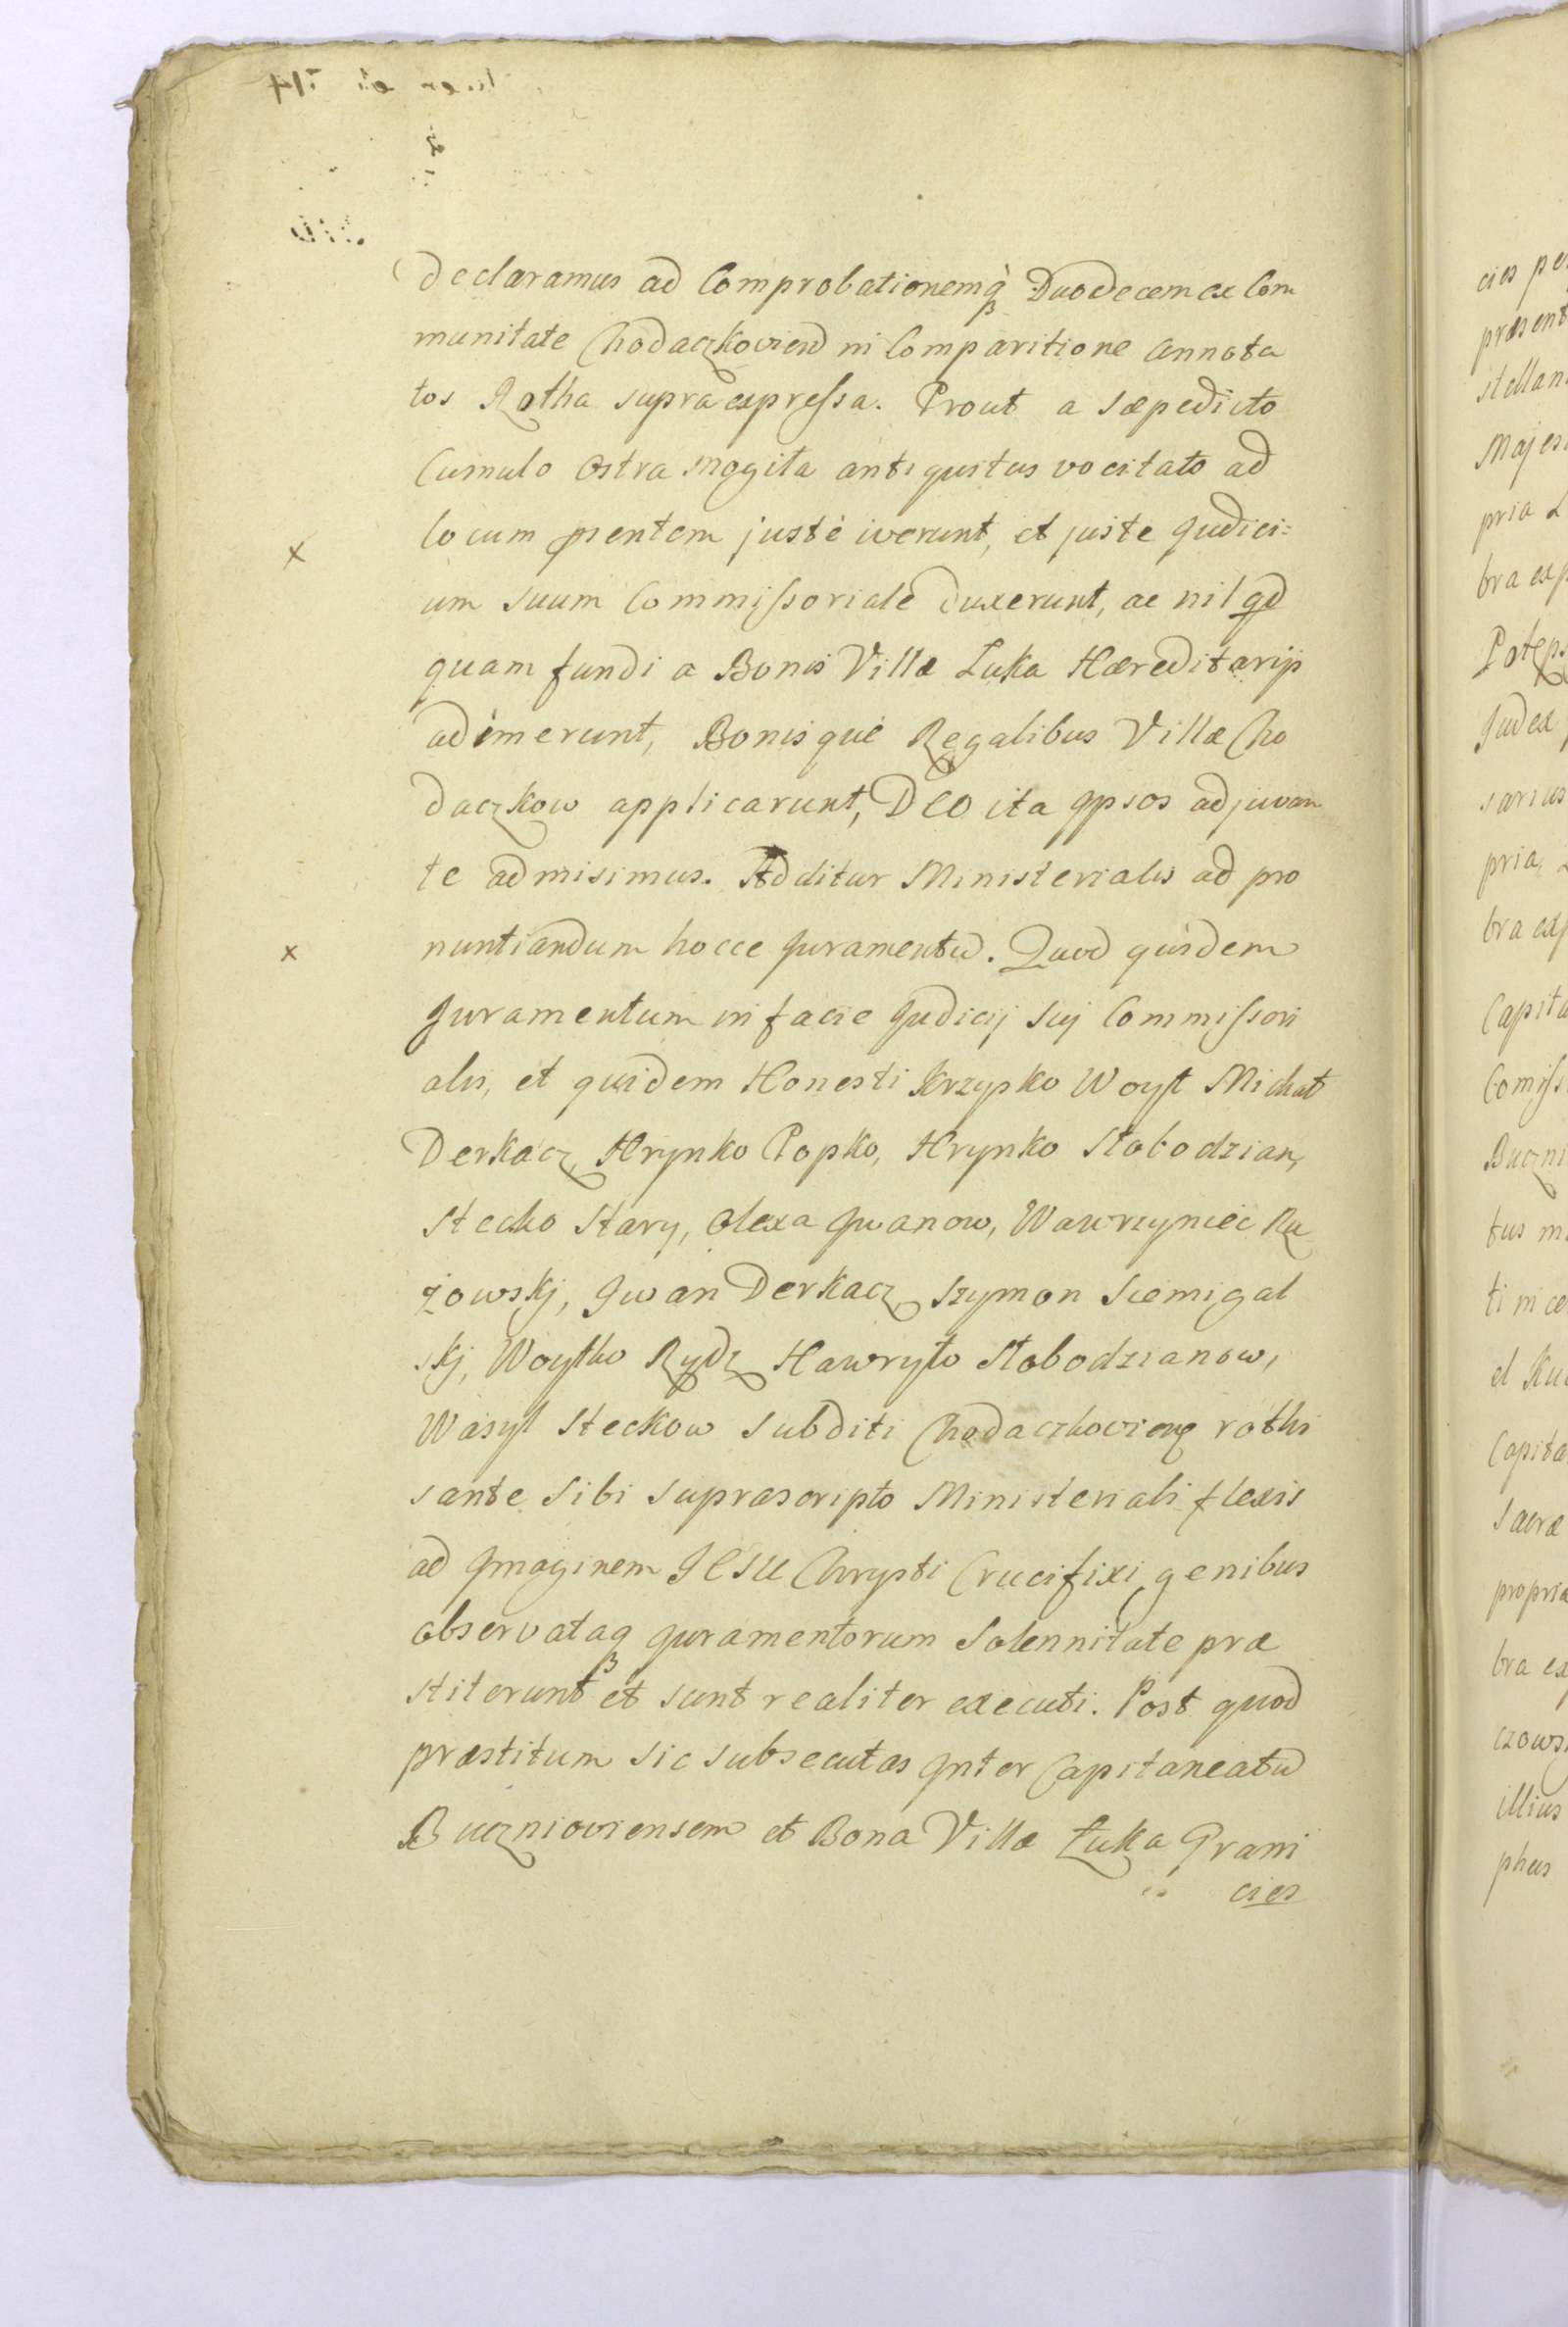 declaramus ad Comprobationemq̀ Duodecem ex Com
munitate Chodaczkovien̄ in Comparitione annota
tos Rotha supra expressa. Prout a sæpedicto
Cumulo Ostra Mogiła antiquitus vocitato ad
locum pr̄entem justè iverunt, et juste Judici=
um suum Commissoriale duxerunt, ac nil qd
quam fundi a Bonis Villæ Łuka Hæreditarijs
adimerunt, Bonisquè Regalibus Villæ Cho
daczkow applicarunt, DEO ita Ipsos adjuvan
te admisimus. Additur Ministerialis ad pro
nuntiandum hocce Juramentū. Quod quidem
Juramentum in facie Judicij sui Commissori
alis, et quidem Honesti Skrzypko Woyt Michał
Derkacz, Hrynko Popko, Hrynko Słobodzian,
Stecko Stary, Olexa Iwanow, Wawrzyniec Ru
żowskj, Iwan Derkacz, Szymon Siemigal
skj, Woytko Rydz, Hawryło Słobodzianow,
Wasyl Steckow Subditi Chodaczkovien̄ rothi
sante sibi suprascripto Ministeriali flexis
ad Imaginem JESU Chrysti Crucifixi genibus
observataq Juramentorum Solennitate præ
stiterunt et sunt realiter executi. Post quod
præstitum sic subsecutas Inter Capitaneatū
Buczniowiensem et Bona Villæ Łuka Grani
cies
x
x
cies
præsent
Majes
pria
bra exp
Judex
pria
bra exp
Capita
Comiss
Buczni
tus
ti in
Capita
Sacræ
propria
bra ex
czows
illius
phus